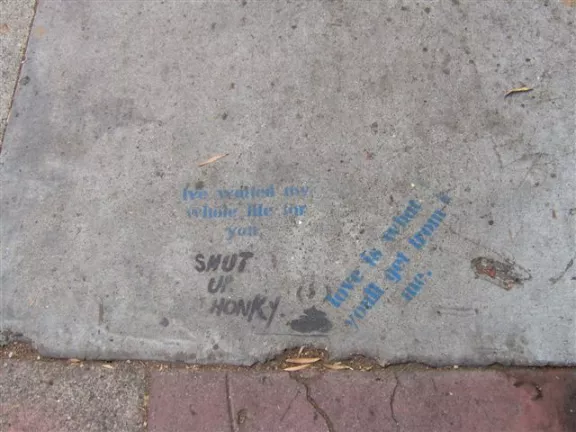 I've waited my
whole life for
you
SHUT
UP
HONKY.
love is what
you'll get from
me.